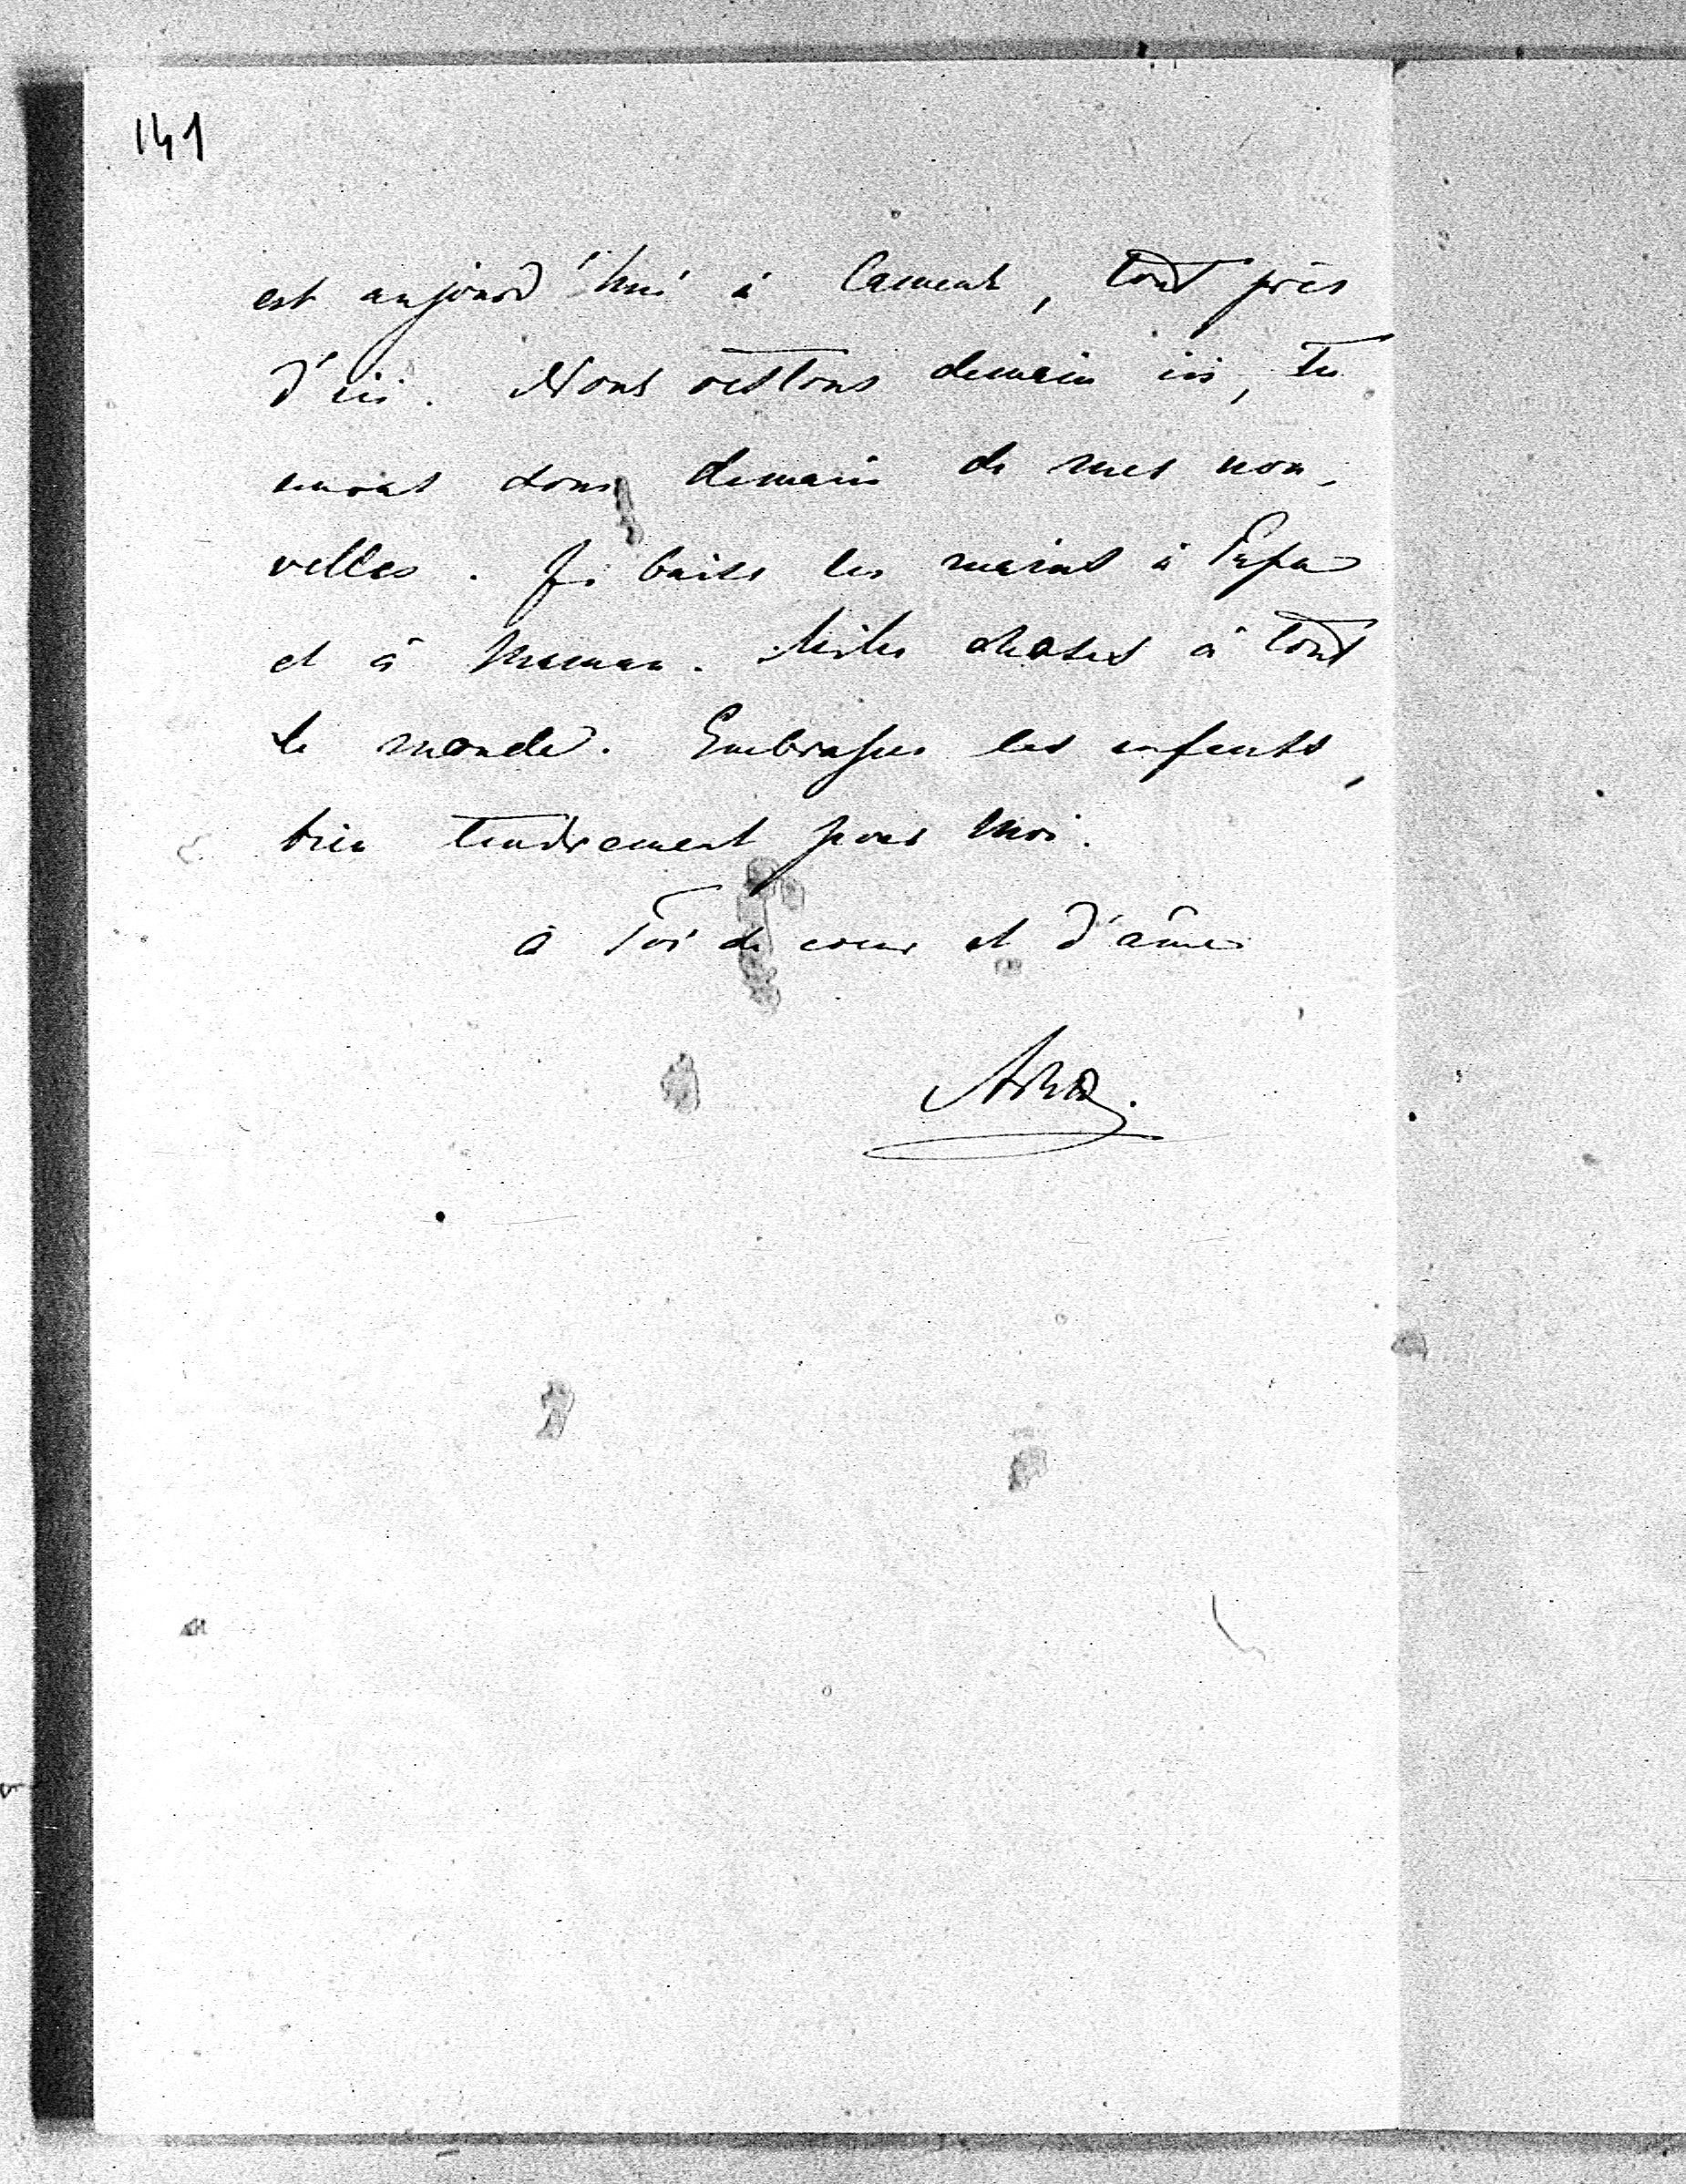 141
est aujourd'hui à Cament, tout près
d'ici. Nous restons demain ici, tu
auras donc demain de mes nou-
velles. Je baise les mains à Papa
et à Maman. Milles choses à tout
le monde. Embrasses les enfants,
bien tendrement pour moi.
à Toi de coeur et d'âme